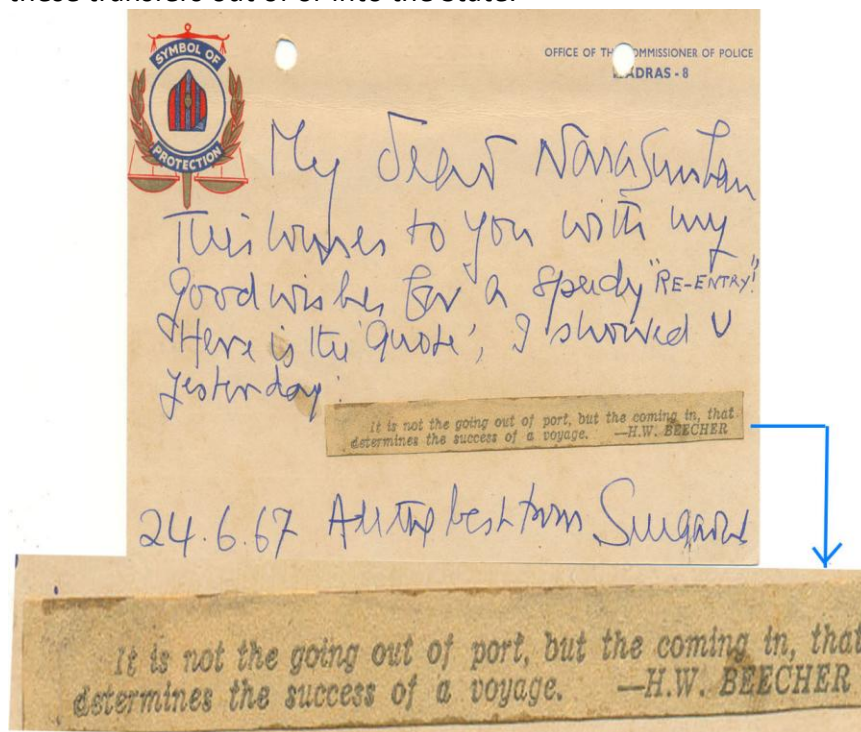 these transfers out of or into the State.
SYMBOL OF
PROTECTION
OFFICE OF THE COMMISSIONER OF POLICE
MADRAS - 8
My dear Narasimhan
This comes to you with my
good wishes for a speedy "RE-ENTRY".
Here is the 'Quote', I showed U
yesterday.
It is not the going out of port, but the coming in, that
determines the success of a voyage. —H.W. BEECHER
24.6.67 All the best from
It is not the going out of port, but the coming in, that
determines the success of a voyage. —H.W. BEECHER